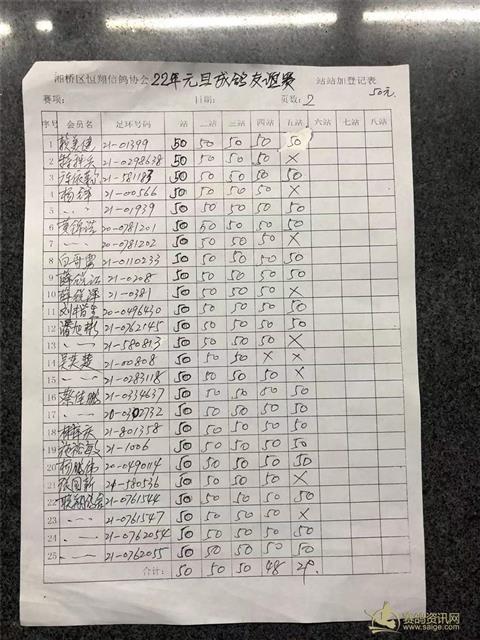 湘桥区恒翔信鸽协会 22年元旦成鸽友谊赛 站站加登记表
赛项: 日期: 页数: 2 50元
序号 会员名 足环号码 一站 二站 三站 四站 五站 六站 七站 八站
1 21-01399 50 50 50 50 50
2 21-0298638 50 50 50 50 X
3 21-581183 50 50 50 50 50
4 杨锋 21-00566 50 50 50 50 X
5 〃 21-01939 50 50 50 50 50
6 黄锦浩 20-0781201 50 50 50 50 50
7 〃 20-0781202 50 50 50 50 X
8 21-0110233 50 50 50 50 50
9 21-0208 50 50 50 50 50
10 21-0381 50 50 50 50 X
11 20-0496430 50 50 50 50 50
12 潘旭彬 21-0762145 50 50 50 50 50
13 〃 21-580813 50 50 50 50 X
14 吴奕楚 21-00808 50 50 50 X X
15 〃 21-0283118 50 50 50 50 X
16 蔡佳鹏 21-0334637 50 50 50 50 50
17 〃 20-0302732 50 50 50 50 50
18 21-801358 50 50 50 50 50
19 21-1006 50 50 50 50 X
20 20-0490114 50 50 50 50 50
21 张国新 21-580536 50 50 50 50 X
22 21-0761544 50 50 50 50 50
23 〃 21-0761547 50 50 50 50 X
24 〃 21-0762054 50 50 50 50 50
25 〃 21-0762055 50 50 50 50 50
合计: 50 50 50 48 29.
赛鸽资讯网
www.saige.com